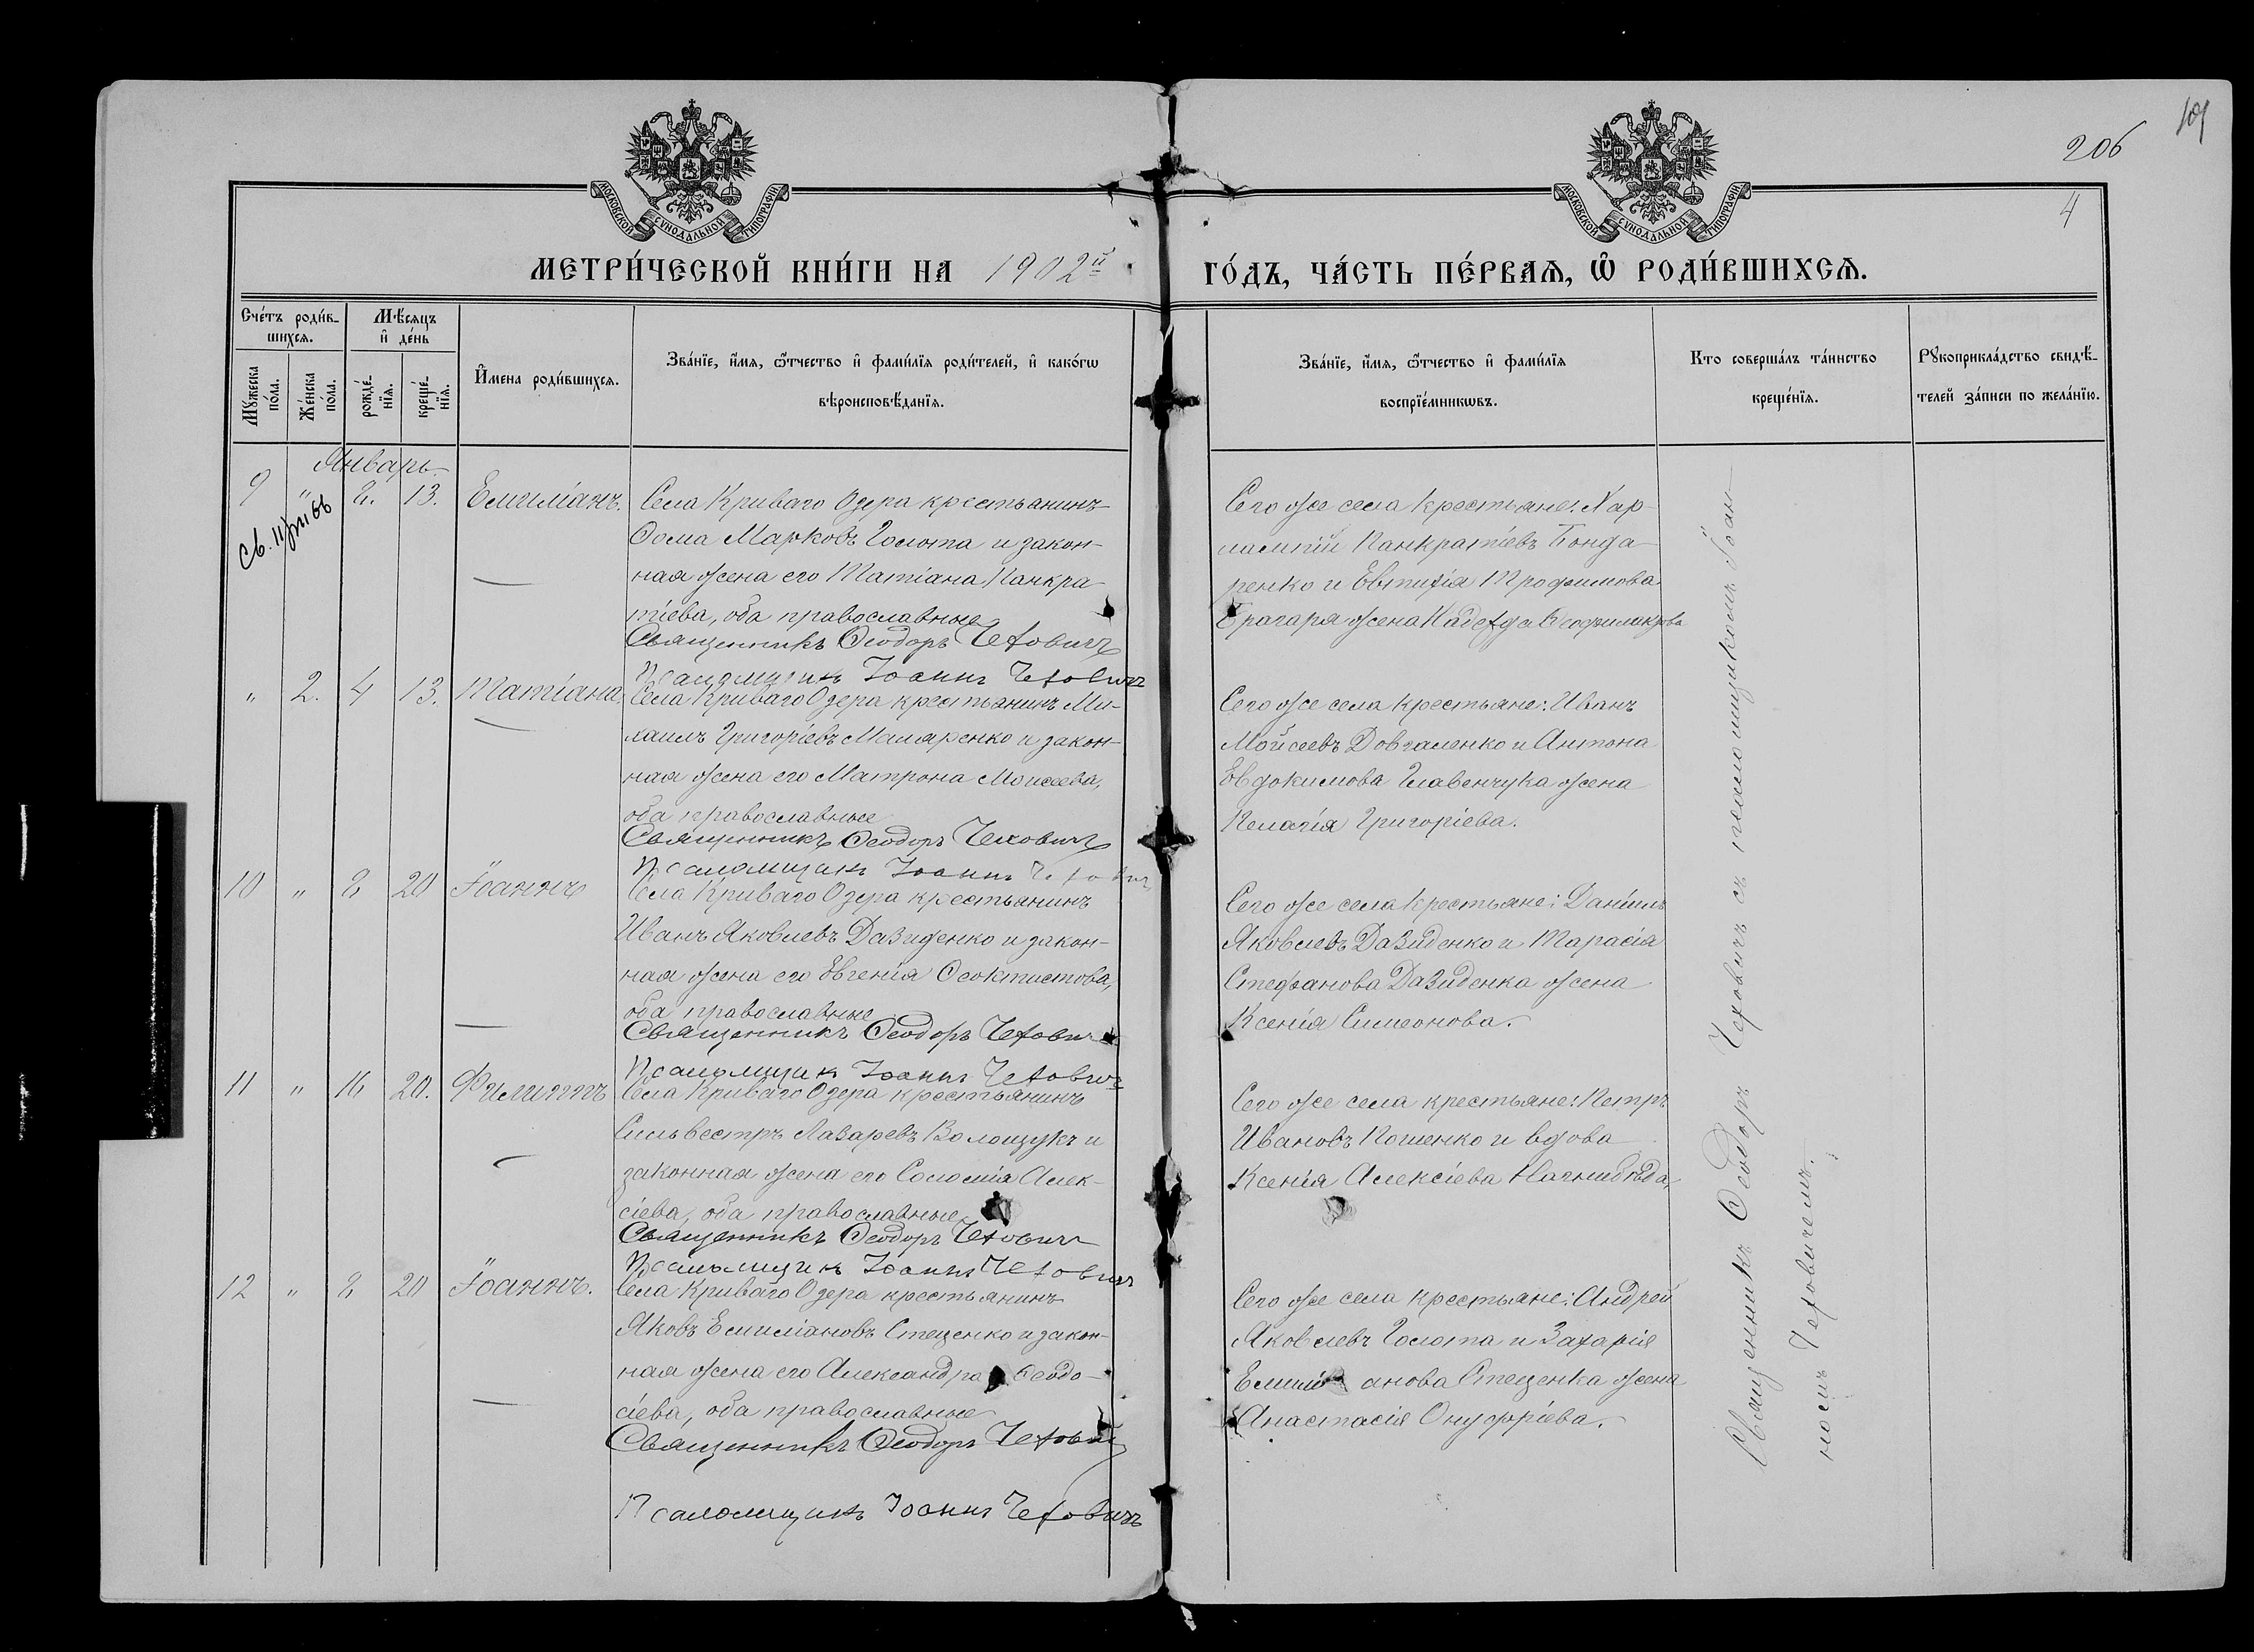 109
206
4
МОСКОВСКОЙ СѴНОДАЛЬНОЙ ТИПОГРАФІИ
МОСКОВСКОЙ СѴНОДАЛЬНОЙ ТИПОГРАФІИ
МЕТРИ́ЧЕСКОЙ КНИ́ГИ НА 1902й ГО́ДЪ, ЧА́СТЬ ПЕ́РВАѦ, Ѡ РОДИ́ВШИХСѦ.
Сче́тъ роди́в-
шихсѧ.
Мѣ́сѧцъ
и҆ де́нь
Мꙋ́жеска
по́ла.
Же́нска
по́ла.
рожде́-
нїѧ.
креще́-
нїѧ.
И҆мена роди́вшихсѧ.
Зва́нїе, и҆́мѧ, ѻ҆́тчество и҆ фами́лїѧ роди́телей, и҆ како́гѡ
вѣроисповѣ́данїѧ.
Зва́нїе, и҆́мѧ, ѻ҆́тчество и҆ фами́лїѧ
воспрїе́мникѡвъ.
Кто соверша́лъ та́инство
креще́нїѧ.
Рꙋкоприкла́дство свидѣ́-
телей за́писи по жела́нїю.
Январь
9 " 8. 13. Емиліанъ. Села Криваго Озера крестьянинъ
Ѳома Марковъ Голота и закон-
ная жена его Татіана Панкра-
тіева, оба православные
Священникъ Ѳеодоръ Чеховичъ
Псаломщикъ Іоаннъ Чеховичъ
Сего же села крестьяне: Хар-
лампій Панкратіевъ Бонда-
ренко и Евтихія Трофимова
Брагаря жена Надежда
" 2. 4 13. Татіана. Села Криваго Озера крестьянинъ Ми-
хаилъ Григоріевъ Маляренко и закон-
ная жена его Матрона Моисеева,
оба православные
Священникъ Ѳеодоръ Чеховичъ
Псаломщикъ Іоаннъ Чеховичъ
Сего же села крестьяне: Иванъ
Мойсеевъ Довгаленко и Антона
Евдокимова Главенчука жена
Пелагія Григоріева.
10 " 8 20 Іоаннъ Села Криваго Озера крестьянинъ
Иванъ Яковлевъ Давиденко и закон-
ная жена его Евгенія Ѳеоктистова,
оба православные
Священникъ Ѳеодоръ Чеховичъ
Псаломщикъ Іоаннъ Чеховичъ
Сего же села крестьяне: Даніилъ
Яковлевъ Давиденко и Тарасія
Стефанова Давиденка жена
Ксенія Симеонова.
11 " 16 20. Филиппъ Села Криваго Озера крестьянинъ
Сильвестръ Лазаревъ Волощукъ и
законная жена его Соломія Алек-
сіева, оба православные
Священникъ Ѳеодоръ Чеховичъ
Псаломщикъ Іоаннъ Чеховичъ
Сего же села крестьяне: Петръ
Ивановъ и вдова
Ксенія Алексіева Нагнибѣда.
12 " 8 20 Іоаннъ. Села Криваго Озера крестьянинъ
Яковъ Емиліановъ Стеценко и закон-
ная жена его Александра Ѳеодо-
сіева, оба православные
Священникъ Ѳеодоръ Чеховичъ
Псаломщикъ Іоаннъ Чеховичъ
Сего же села крестьяне: Андрей
Яковлевъ Голота и Захарія
Емиліанова Стеценка жена
Анастасія Онуфріева.
Священникъ Ѳеодоръ Чеховичъ съ псаломщикомъ Іоан-
номъ Чеховичемъ.